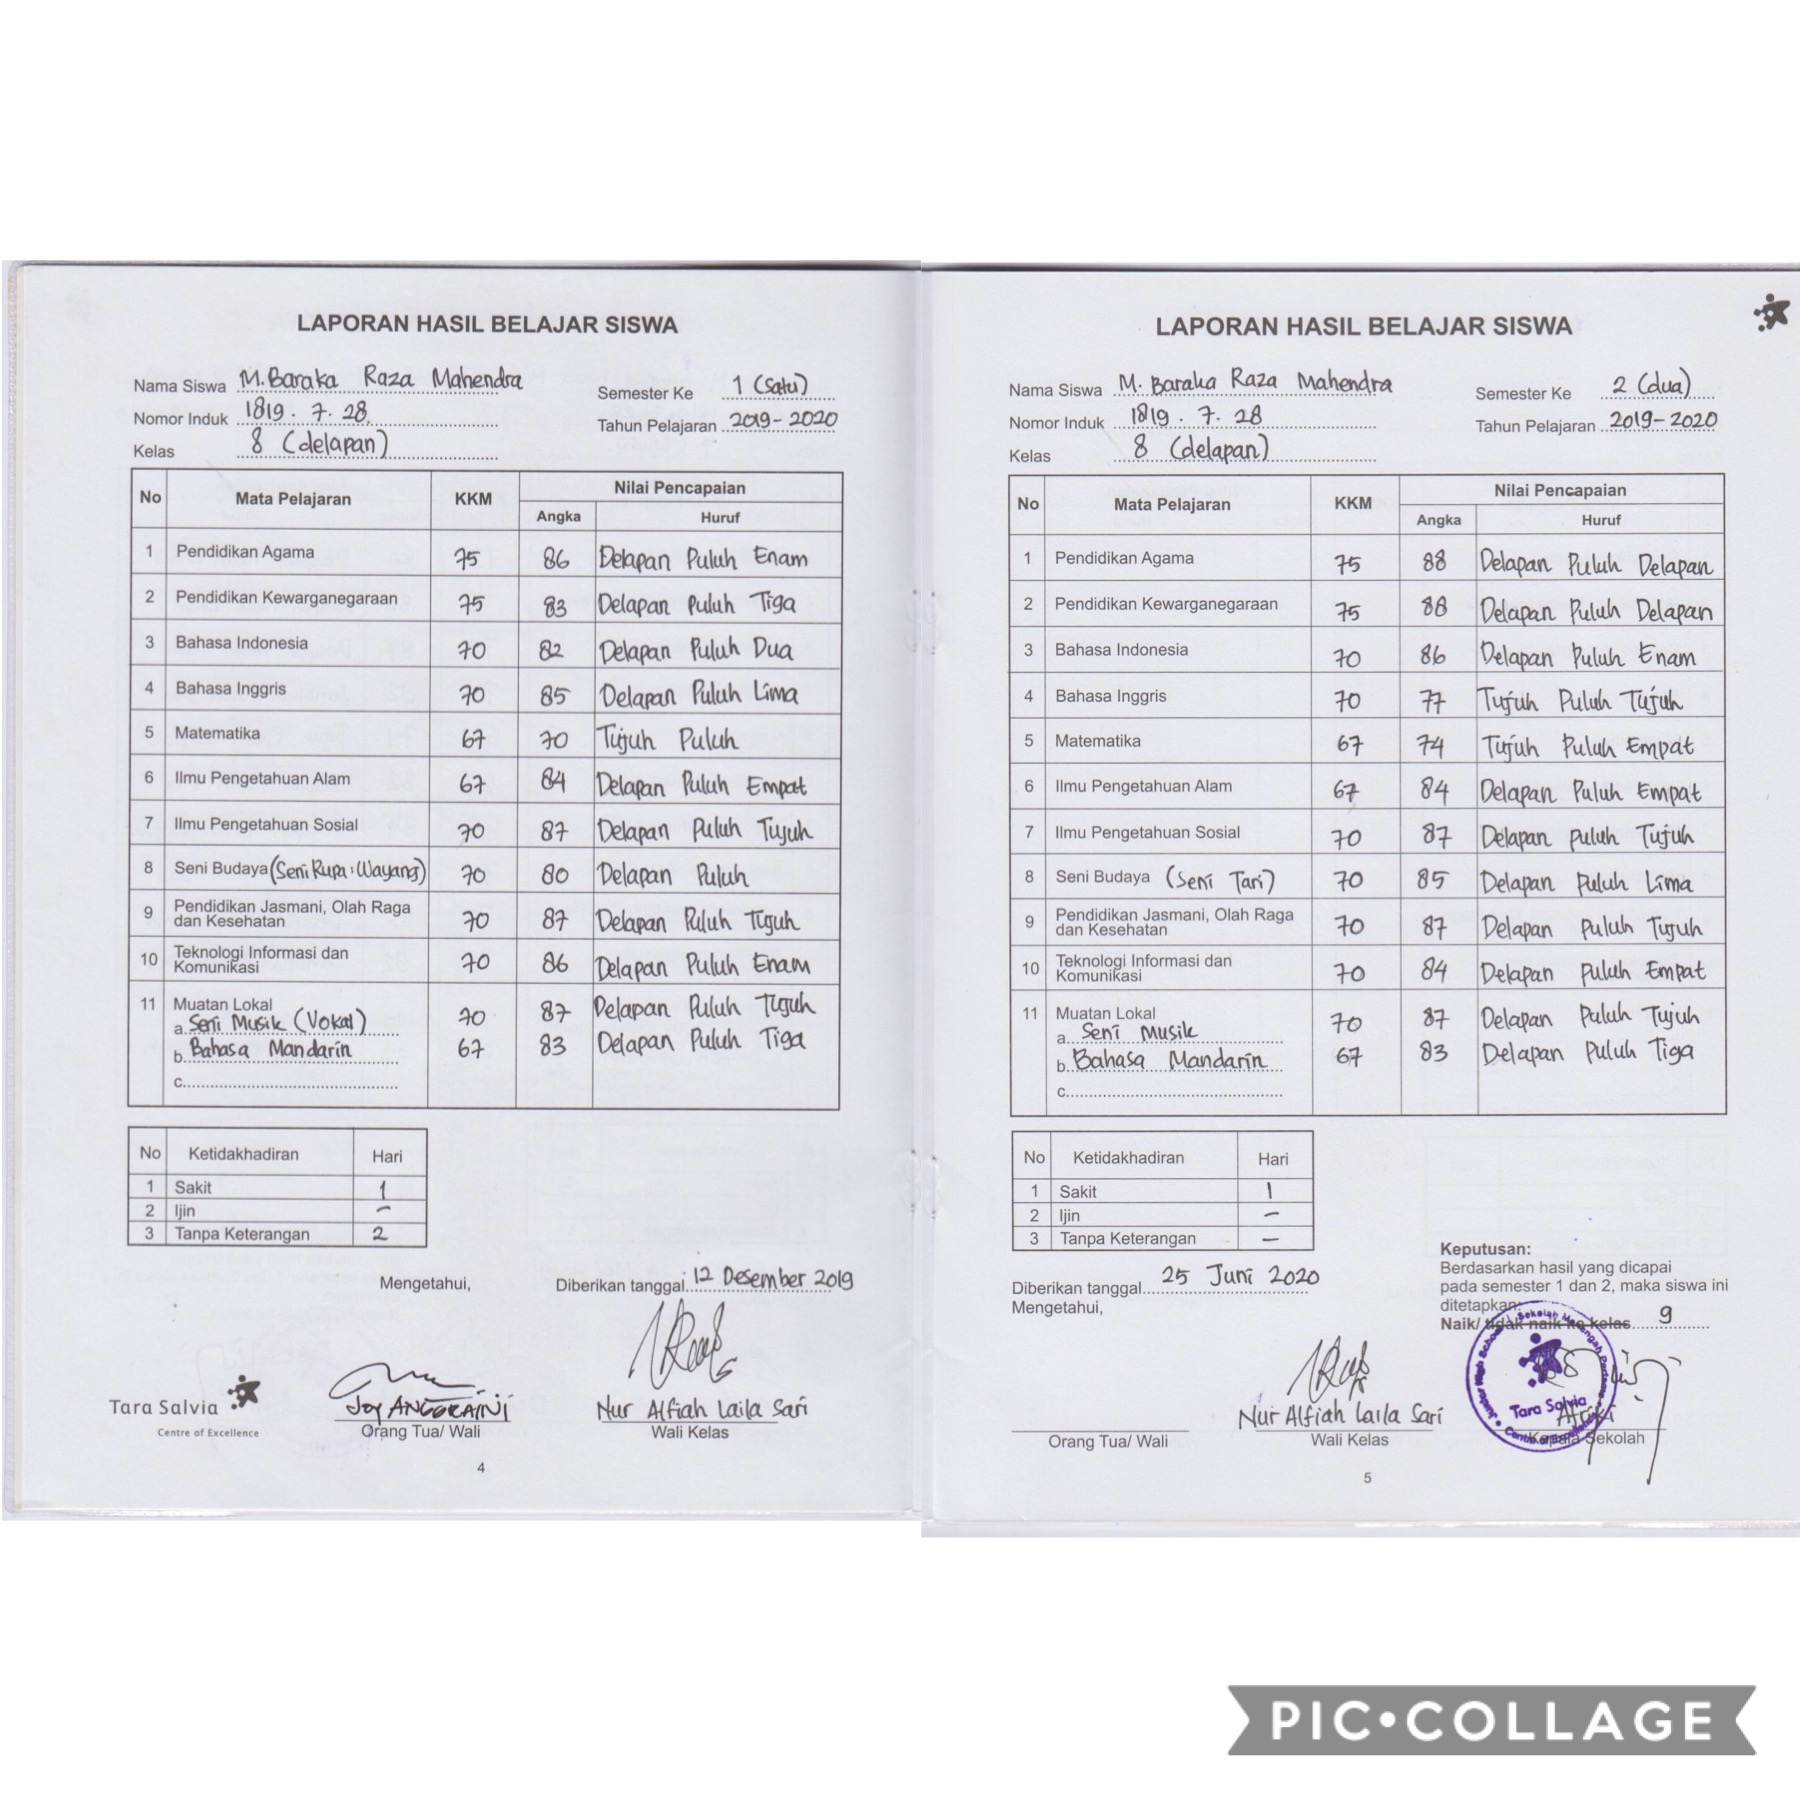 LAPORAN HASIL BELAJAR SISWA
Nama Siswa M. Baraka Raza Mahendra
Nomor Induk 1819. 7. 28
Kelas 8 (delapan)
Semester Ke 1 (Satu)
Tahun Pelajaran 2019-2020
No Mata Pelajaran KKM Nilai Pencapaian
Angka Huruf
1 Pendidikan Agama 75 86 Delapan Puluh Enam
2 Pendidikan Kewarganegaraan 75 83 Delapan Puluh Tiga
3 Bahasa Indonesia 70 82 Delapan Puluh Dua
4 Bahasa Inggris 70 85 Delapan Puluh Lima
5 Matematika 67 70 Tujuh Puluh
6 Ilmu Pengetahuan Alam 67 84 Delapan Puluh Empat
7 Ilmu Pengetahuan Sosial 70 87 Delapan Puluh Tujuh
8 Seni Budaya (Seni Rupa : Wayang) 70 80 Delapan Puluh
9 Pendidikan Jasmani, Olah Raga
dan Kesehatan 70 87 Delapan Puluh Tujuh
10 Teknologi Informasi dan
Komunikasi 70 86 Delapan Puluh Enam
11 Muatan Lokal
a. Seni Musik (Vokal) 70 87 Delapan Puluh Tujuh
b. Bahasa Mandarin 67 83 Delapan Puluh Tiga
c.
No Ketidakhadiran Hari
1 Sakit 1
2 Ijin -
3 Tanpa Keterangan 2
Mengetahui,
Diberikan tanggal 12 Desember 2019
Tara Salvia
Centre of Excellence
Joy ANGGRAINI
Orang Tua/ Wali
Nur Alfiah Laila Sari
Wali Kelas
4
LAPORAN HASIL BELAJAR SISWA
Nama Siswa M. Baraka Raza Mahendra
Nomor Induk 1819. 7. 28
Kelas 8 (delapan)
Semester Ke 2 (dua)
Tahun Pelajaran 2019-2020
No Mata Pelajaran KKM Nilai Pencapaian
Angka Huruf
1 Pendidikan Agama 75 88 Delapan Puluh Delapan
2 Pendidikan Kewarganegaraan 75 88 Delapan Puluh Delapan
3 Bahasa Indonesia 70 86 Delapan Puluh Enam
4 Bahasa Inggris 70 77 Tujuh Puluh Tujuh
5 Matematika 67 74 Tujuh Puluh Empat
6 Ilmu Pengetahuan Alam 67 84 Delapan Puluh Empat
7 Ilmu Pengetahuan Sosial 70 87 Delapan Puluh Tujuh
8 Seni Budaya (Seni Tari) 70 85 Delapan Puluh Lima
9 Pendidikan Jasmani, Olah Raga
dan Kesehatan 70 87 Delapan Puluh Tujuh
10 Teknologi Informasi dan
Komunikasi 70 84 Delapan Puluh Empat
11 Muatan Lokal
a. Seni Musik 70 87 Delapan Puluh Tujuh
b. Bahasa Mandarin 67 83 Delapan Puluh Tiga
c.
No Ketidakhadiran Hari
1 Sakit 1
2 Ijin -
3 Tanpa Keterangan -
Diberikan tanggal 25 Juni 2020
Mengetahui,
Keputusan:
Berdasarkan hasil yang dicapai
pada semester 1 dan 2, maka siswa ini
ditetapkan:
Naik/ tidak naik ke kelas 9
Orang Tua/ Wali
Nur Alfiah Laila Sari
Wali Kelas
Junior High School Sekolah Menengah Pertama
Tara Salvia
Centre of Excellence
Kepala Sekolah
5
PIC•COLLAGE